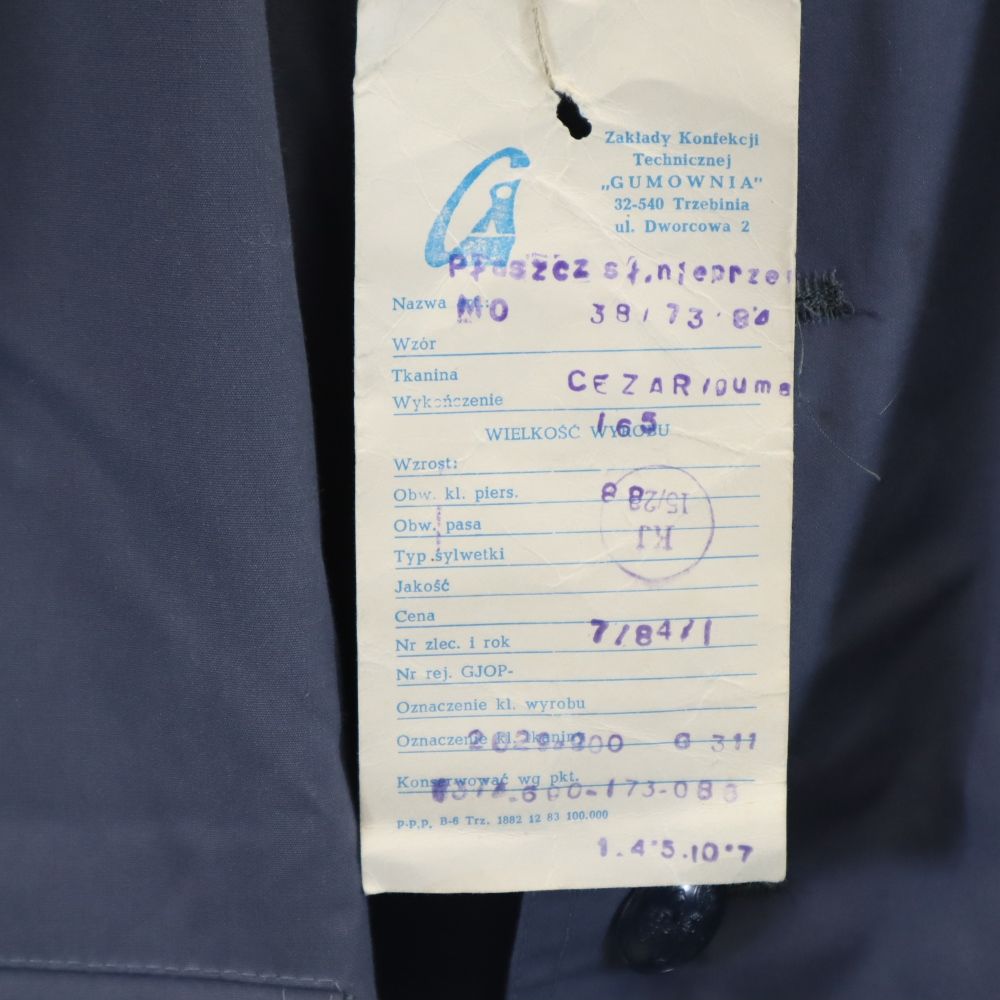 Zakłady Konfekcji
Technicznej
„GUMOWNIA"
32-540 Trzebinia
ul. Dworcowa 2
Płaszcz sł.nieprze
Nazwa
MO 38/73
Wzór
Tkanina
CEZAR/guma
Wykończenie
165
WIELKOŚĆ WYROBU
Wzrost:
Obw. kl. piers.
88
15/28
KJ
Obw. pasa
Typ sylwetki
Jakość
Cena
7/84/1
Nr zlec. i rok
Nr rej. GJOP-
Oznaczenie kl. wyrobu
Oznaczenie kl. tkaniny
311
Konserwować wg pkt.
-173-086
P.P.P. B-6 Trz. 1882 12 83 100.000
1.4.5.10.7